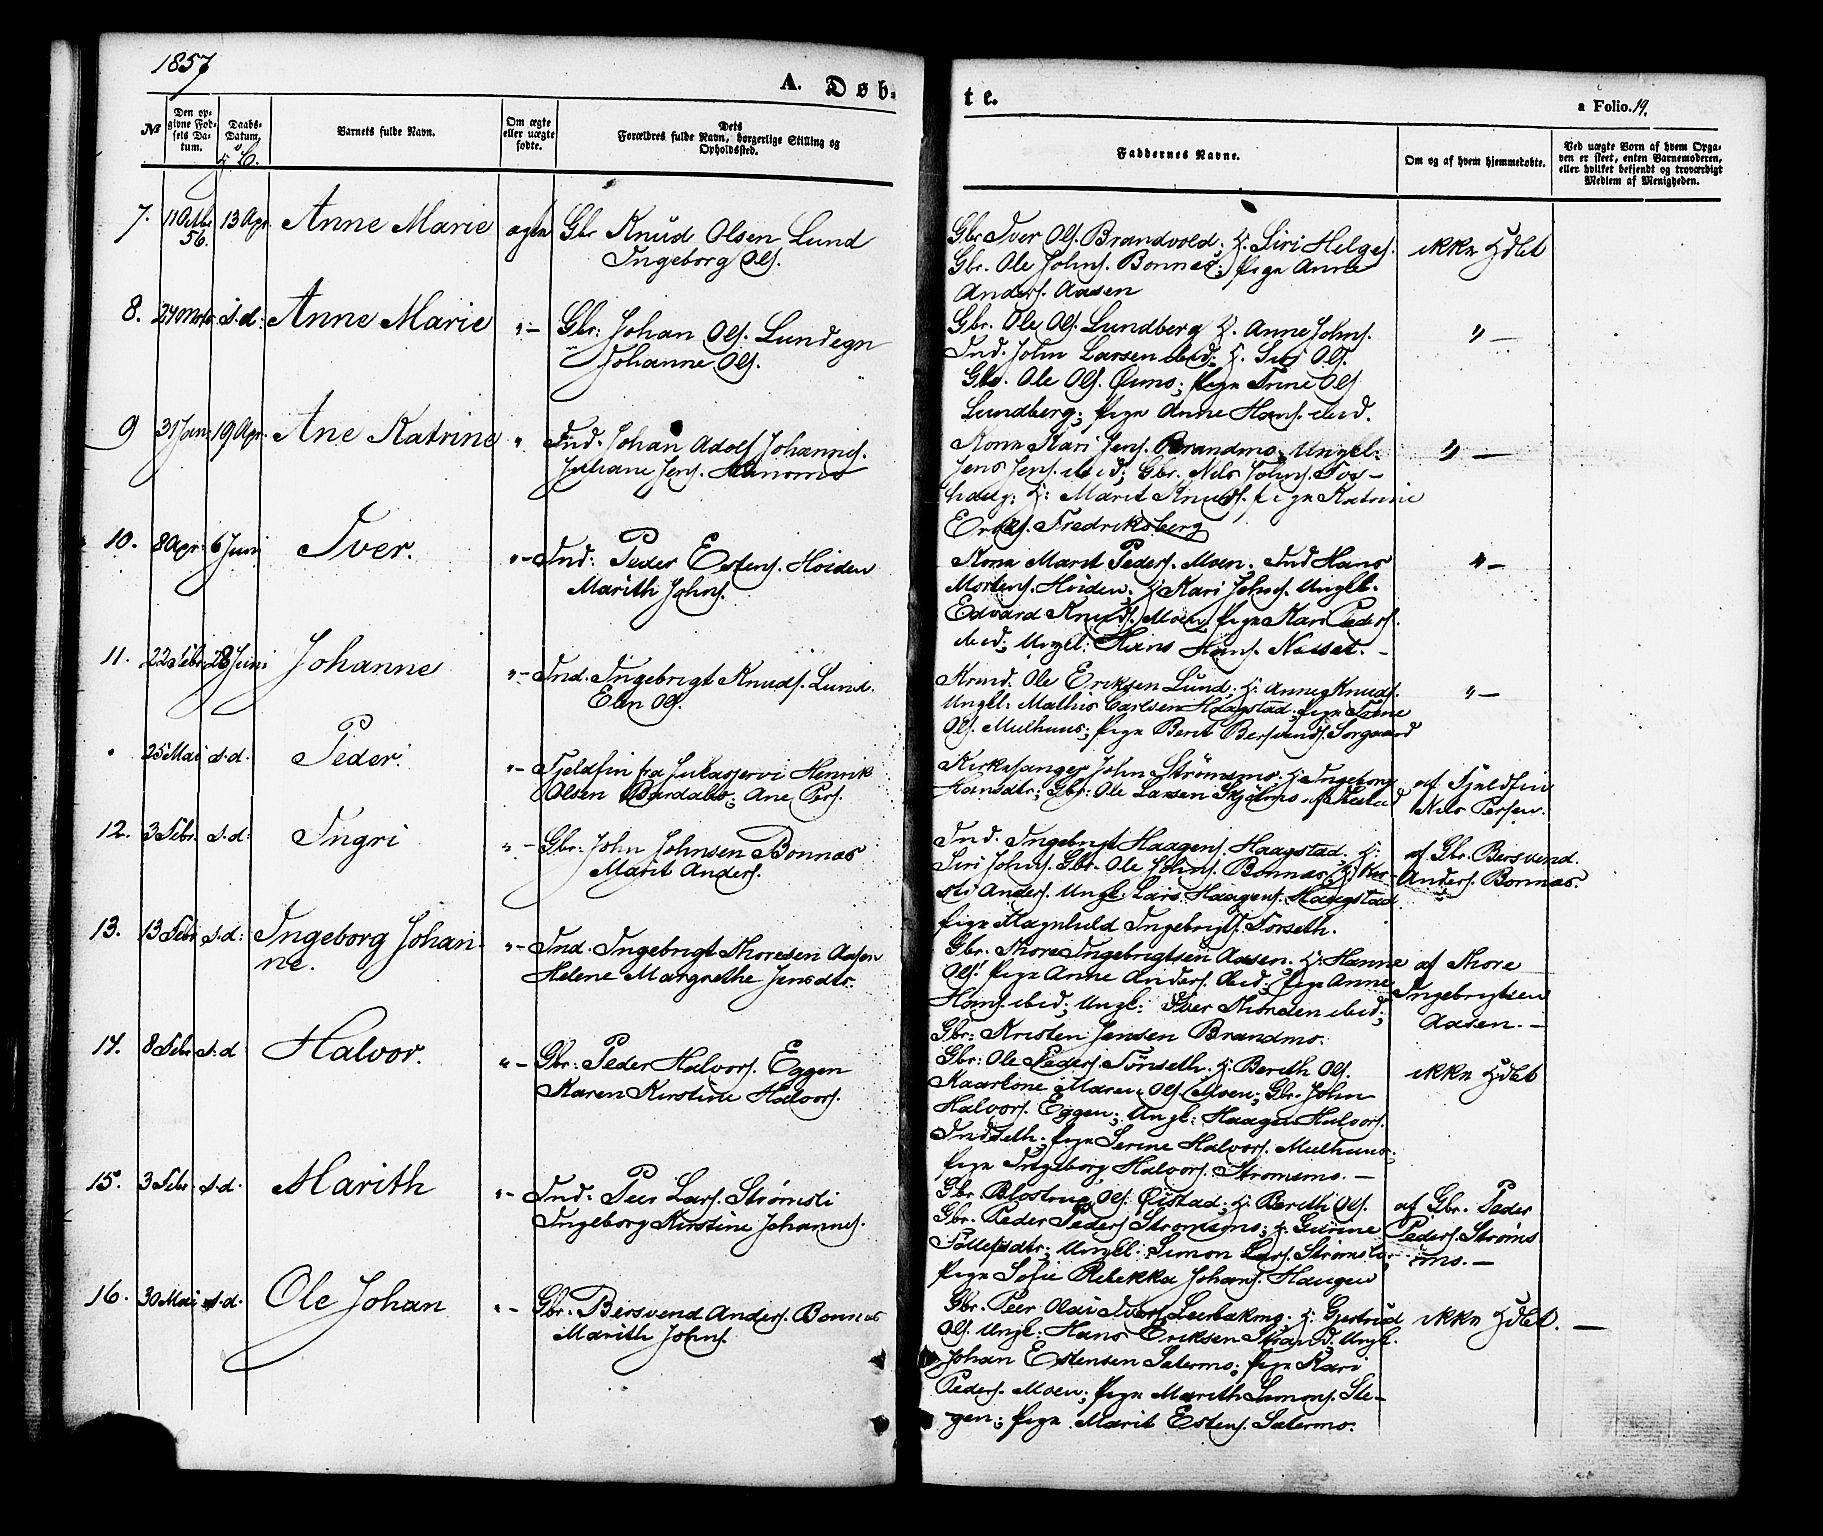 1857
A. Døb-
te.
a Folio. 19.
№
Den op-
givne Fød-
sels Da-
tum.
Daabs-
Datum.
Barnets fulde Navn.
Om ægte
eller uægte
fødte.
Dets
Forældres fulde Navn, borgerlige Stilling og
Opholdssted.
Faddernes Navne.
Om og af hvem hjemmedøbte.
Ved uægte Børn af hvem Opga-
ven er skeet, enten Barnemoderen,
eller hvilket bekjendt og troværdigt
Medlem af Menigheden.
7. 11 Octbr 56. 13 Apr. Anne Marie ægte
Gbr Knud Olsen Lund
Ingeborg Ols.
Gbr Iver Ols. Brandvold. H. Siri Helges.
Gbr. Ole Johns. Bonnes; Pige Anne
Anders. Aasen
ikke Hdbt
8. s.d: Anne Marie "–
Gbr: Johan Ols. Lundegn
Johanne Ols.
Gbr. Ole Ols. Lundberg H. Anne Johns.
Ind. John Larsen ibid: H. Siri Ols.
Gbr. Ole Ols. Øuns; Pige Trine Ols
Lundberg; Pige Anne Hans. ibid.
" –
9 31 Janr 19 Apr. Ane Katrine "
Ind. Johan Adolf Johannes.
Juliane Jens.
Kone Kari Jens. Brandmo; Ungk:
Jens Jens. ibid; Gbr. Nils Johns. Fos-
haug: H: Marit Knuds. Pige Katrine
Fredriksberg
" –
10. 8 Apr. 6 Juni Iver. "–
Ind: Peder Estens. Hoiden
Marith Johns.
Kone Marit Peders. Moen; Ind Hans
Mortens. Hoiden; H Kari Johns. Ungk.
Edvard Knuds. Moen, Pige Kari Peders.
ibid; Ungk: Hans Hans. Næsset. –
"–
11. 22 Febr. 28 Juni Johanne "–
Ind. Ingebrigt Knuds. Lund.
Elen Ols.
Ole Eriksen Lund; H: Knuds.
Ungk: Mathis Carlsen Haagstad; Pige Trine
Ols. Mulhuus; Pige Berit Bersvends. Sorgaard
"–
25 Mai s.d. Peder. "–
Fjeldfin fra Jukasjervi Henrik
Olsen ; Ane Pers.
Kirkesanger John Strømsmo. H: Ingeborg
Hansdtr; Gbr: Ole Larsen
af Fjeldfin
Nils Persen.
12. 3 Febr. s.d: Ingri "–
Gbr: John Johnsen Bonnas
Marit Anders.
Ind. Ingebrigt Haagens. Haagstad. H:
Siri Johns. Gbr. Ole Johns. Bonnas H: Ker-
sti Anders. Ungk. Lars Haagens. Haagstad
Pige Magnhild Ingebrigts. Forseth.
af Gbr. Bersvend.
Anders. Bonnas.
13. 13 Febr s.d: Ingeborg Johan-
ne.
"–
Ind. Ingebrigt Thoresen Aasen
Helene Margrethe Jensdtr.
Gbr. Thore Ingebrigtsen Aasen. H: Hanne
Ols. Pige Anne Anders. ibid; Pige Anne
Hans. ibid; Ungk: Iver Thoresen ibid;
Gbr: Kristen Jensen Brandmo.
af Thore
Ingebrigtsen
Aasen. –
14. 8 Febr. s.d Halvor. "–
Gbr: Peder Halvors. Eggen
Karen Kirstine Halvors.
Gbr: Ole Peders. Tønseth. H: Berith Ols.
Kaarkone Maren Ols. Moen; Gbr. John
Halvors. Eggen; Ungk: Haagen Halvors.
Indseth; Pige Serine Halvors. Mulhuus;
Pige Ingeborg Halvors. Strømsmo. –
ikke Hdbt
15. 3 Febr. s.d. Marith "–
Ind: Peer Lars. Strømsli
Ingeborg Kirstine Johannes.
Gbr. Ols. Øistad; H: Berith Ols.
Gbr. Peder Peders. Strømsmo; H: Gurine
Tollefsdtr; Ungk: Simon Lars. Strømsli;
Pige Sofie Rebekka Johans. Haugen
af Gbr. Peder
Peders. Strøms
mo. –
16. 30 Mai s.d. Ole Johan "–
Gbr. Bersvend Anders. Bonnas
Marith Johns.
Gbr. Peer Olai Ivers. Leerbakmo. H: Gjertrud
Ols. Ungk: Hans Eriksen Strand. Ungk.
Johan Estensen Sætermo; Pige Kari
Peders. Moen; Pige Marith Simons. Ste-
gen; Pige Marit Estens. Sætermo.
ikke Hdbt. –